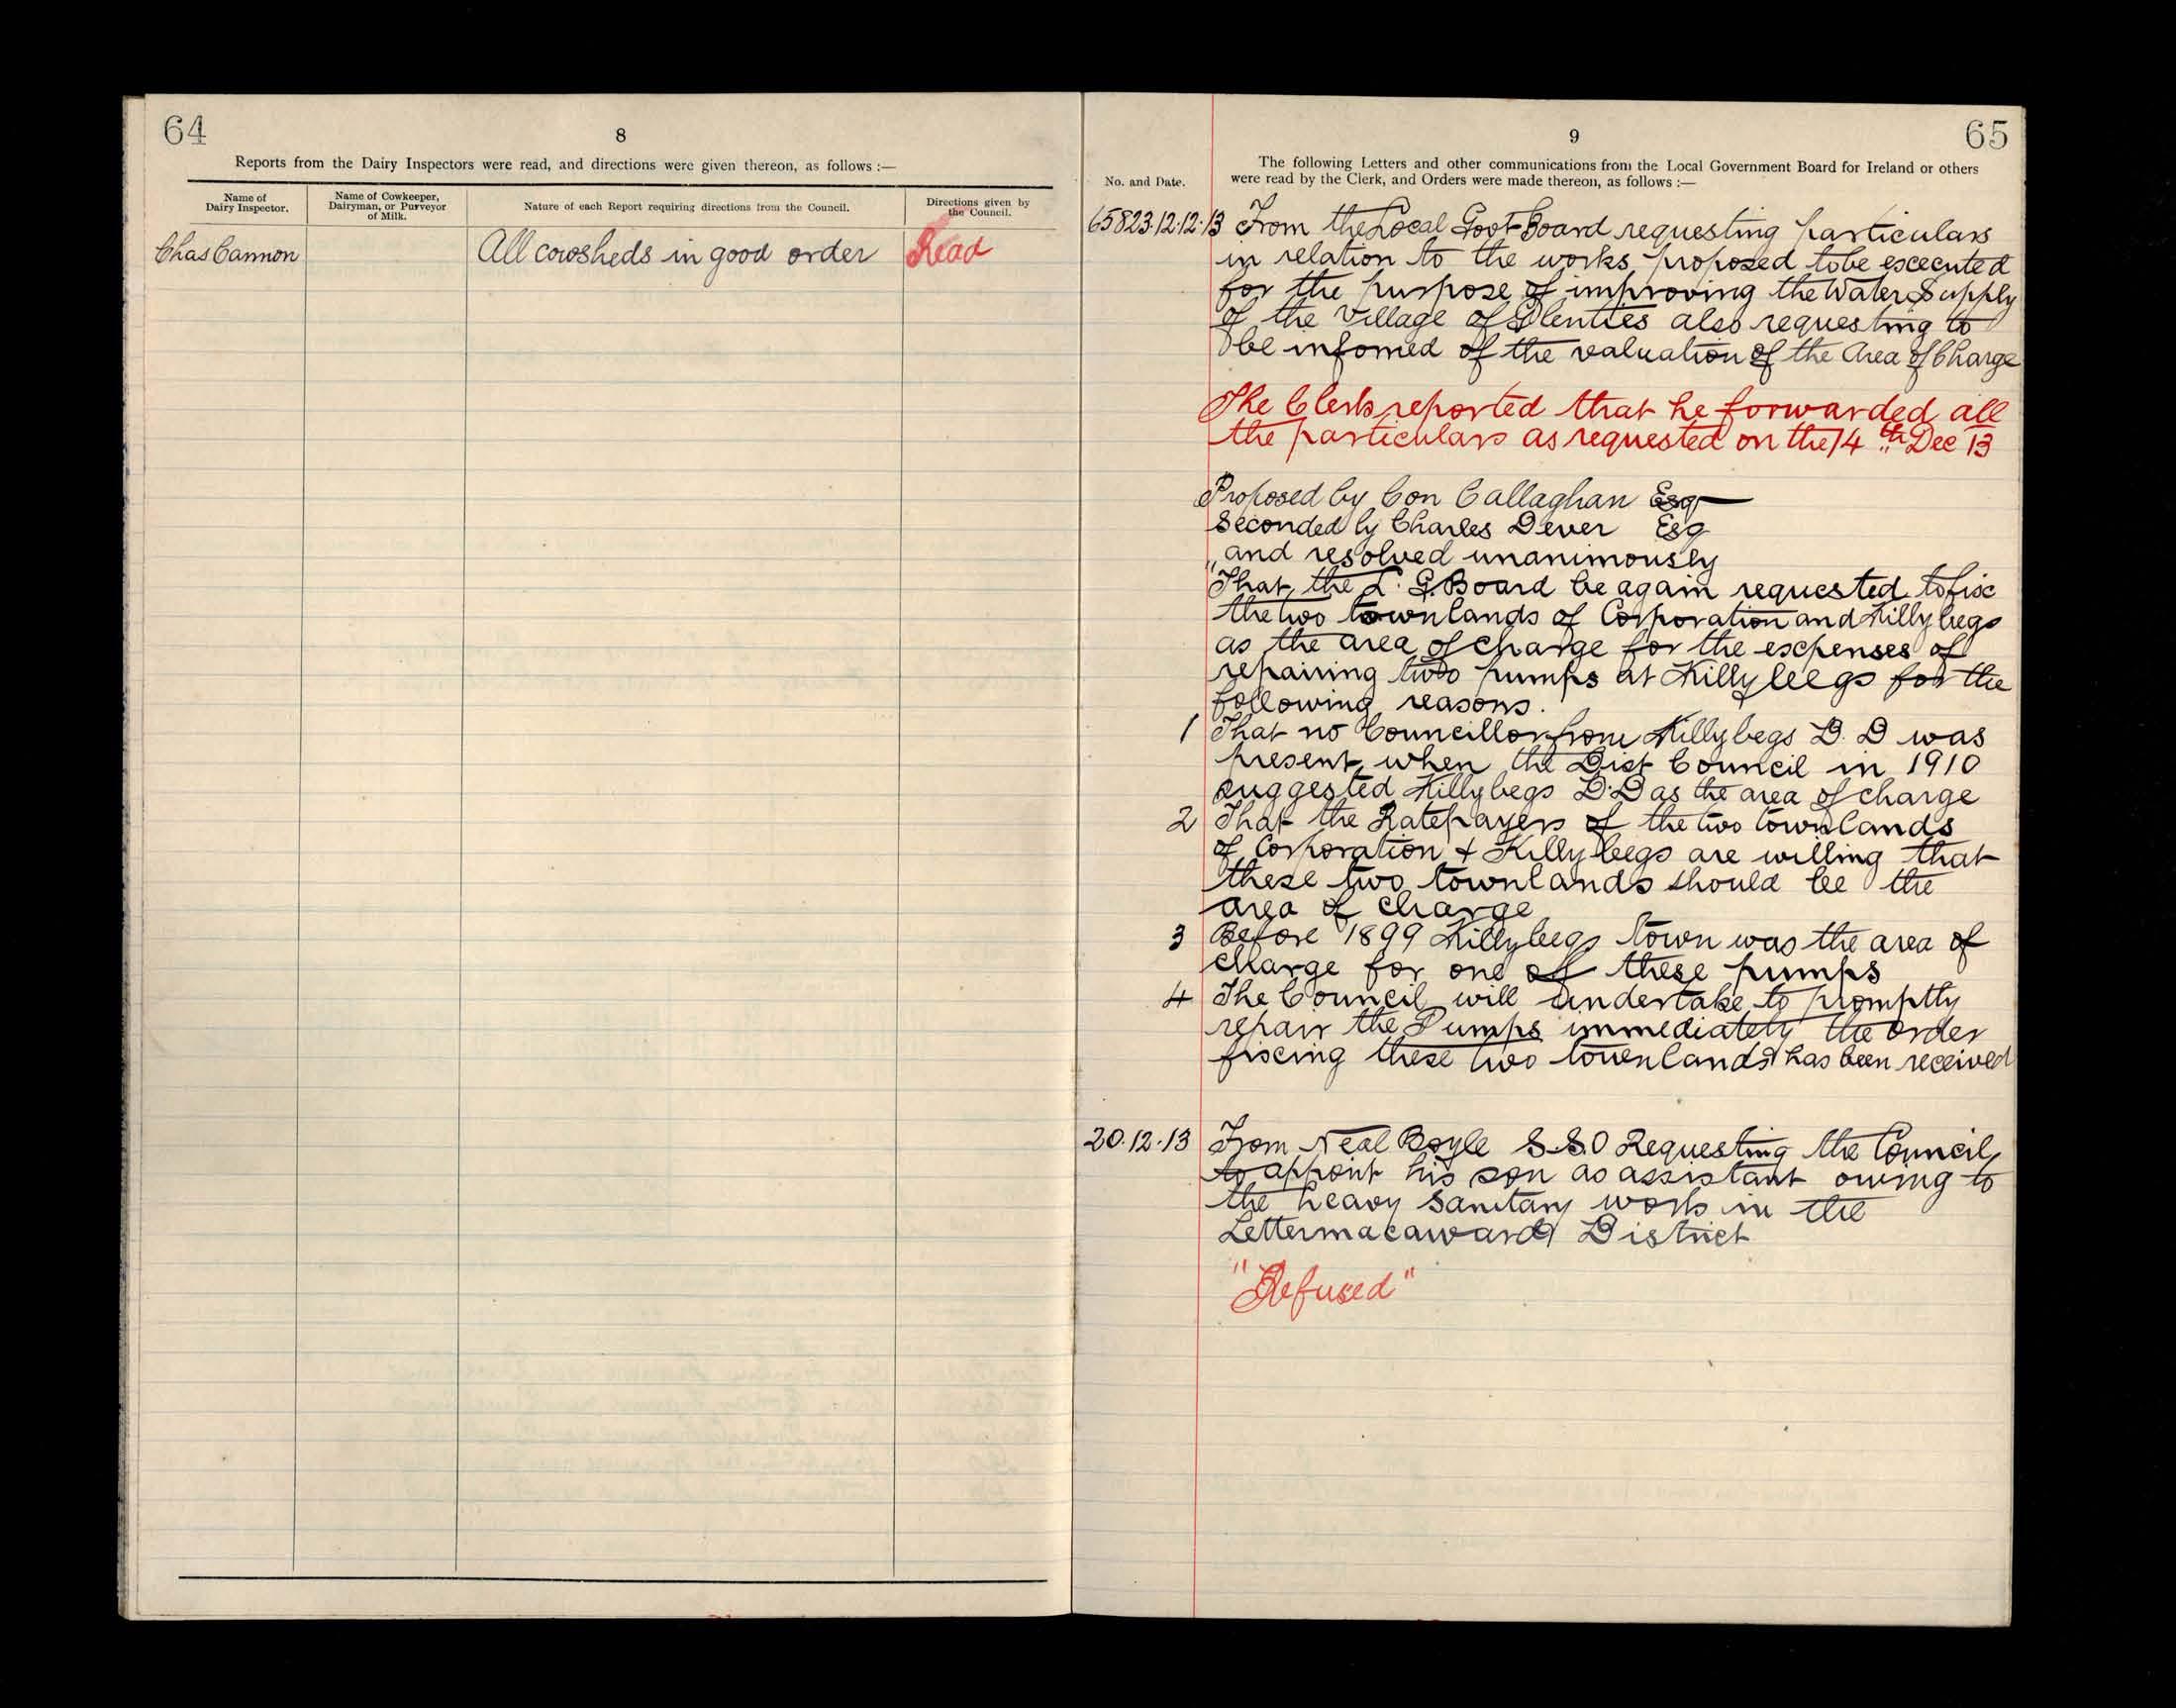 64
8
Reports from the Dairy Inspectors were read, and directions were given thereon, as follows :—
Name of
Dairy Inspector.
Name of Cowkeeper,
Dairyman, or Purveyor
of Milk.
Nature of each Report requiring directions from the Council.
Directions given by
the Council.
Chas Cannon
All cowsheds in good order
Read
65
9
No. and Date.
The following Letters and other communications from the Local Government Board for Ireland or others
were read by the Clerk, and Orders were made thereon, as follows :—
65823.12.12.13 From the Local Govt Board requesting particulars
in relation to the works proposed to be excecuted
for the purpose of improving the Water Supply
of the Village of Glenties also requesting to
be infomed of the valuation of the Area of Charge
The Clerk reported that he forwarded all
the particulars as requested on the 14th Dec 13
Proposed by Con Callaghan Esq
Seconded by Charles Dever Esq
and resolved unanimously
"That the L. G. Board be again requested to fix
the two townlands of Corporation and Killybegs
as the area of charge for the expenses of
repairing two pumps at Killybegs for the
following reasons.
1 That no Councillor from Killybegs D. D was
present when the Dist Council in 1910
suggested Killybegs D.D as the area of charge
2 That the Ratepayers of the two townlands
of Corporation + Killybegs are willing that
these two townlands should be the
area of charge
3 Before 1899 Killybegs town was the area of
charge for one of these pumps
4 The Council will undertake to promptly
repair the Pumps immediately the order
fixing these two townlands has been received
20.12.13 From Neal Boyle S.S.O Requesting the Council
to appoint his son as assistant owing to
the heavy sanitary work in the
Lettermacaward District
"Refused"